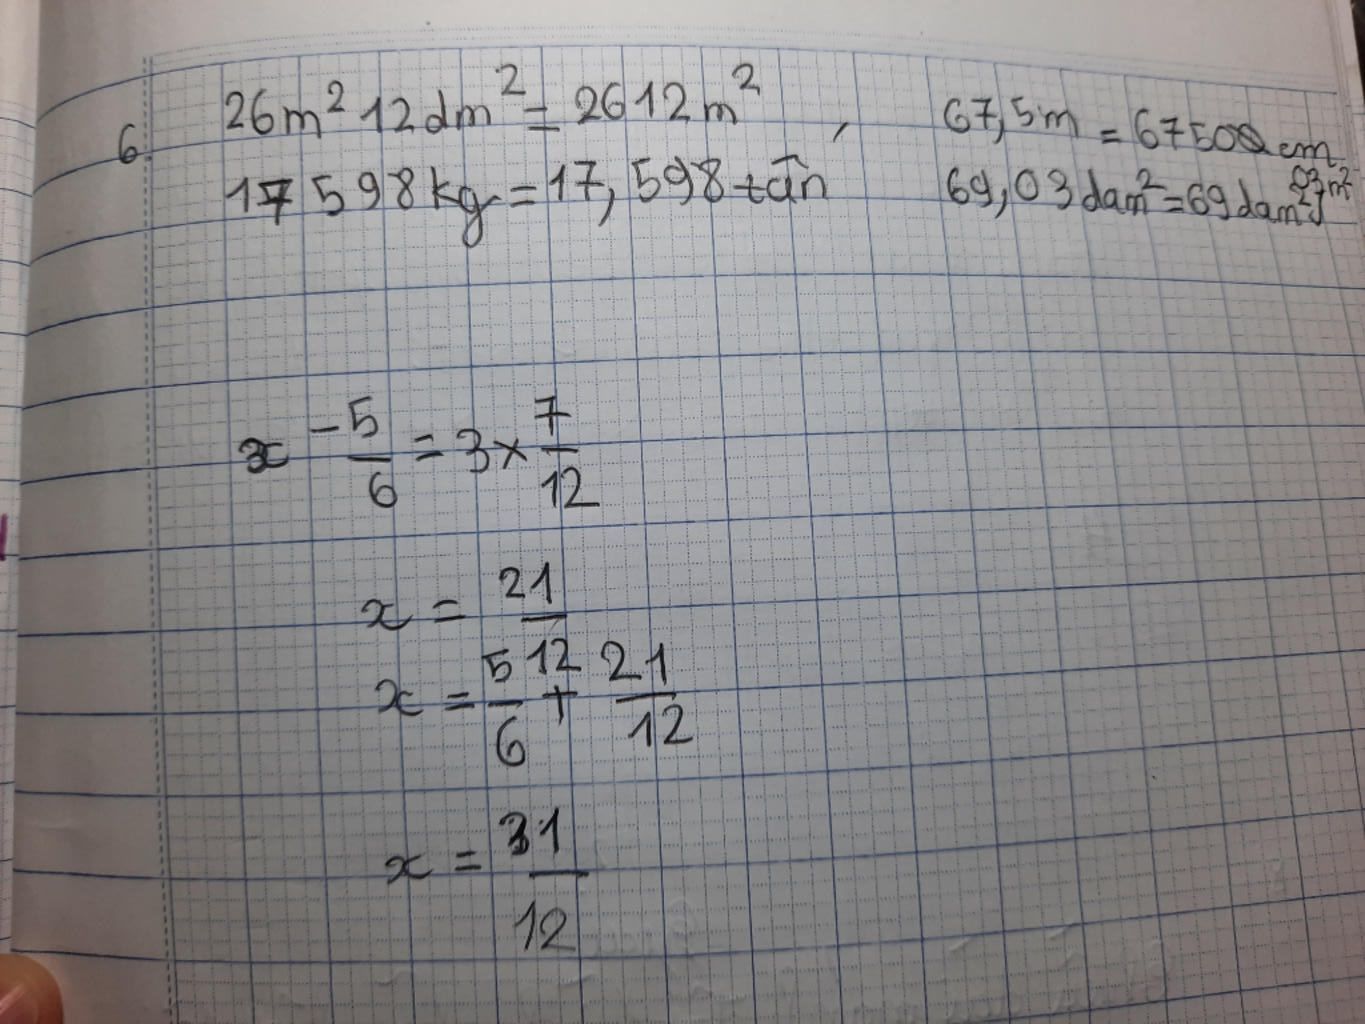 6. 26m² 12dm² = 2612m² , 67,5m = 6750cm
17598kg = 17,598 tấn 69,03dam² = 69dam² 03m²
x - 5/6 = 3 × 7/12
x = 21/12
x = 5/6 + 21/12
x = 31/12